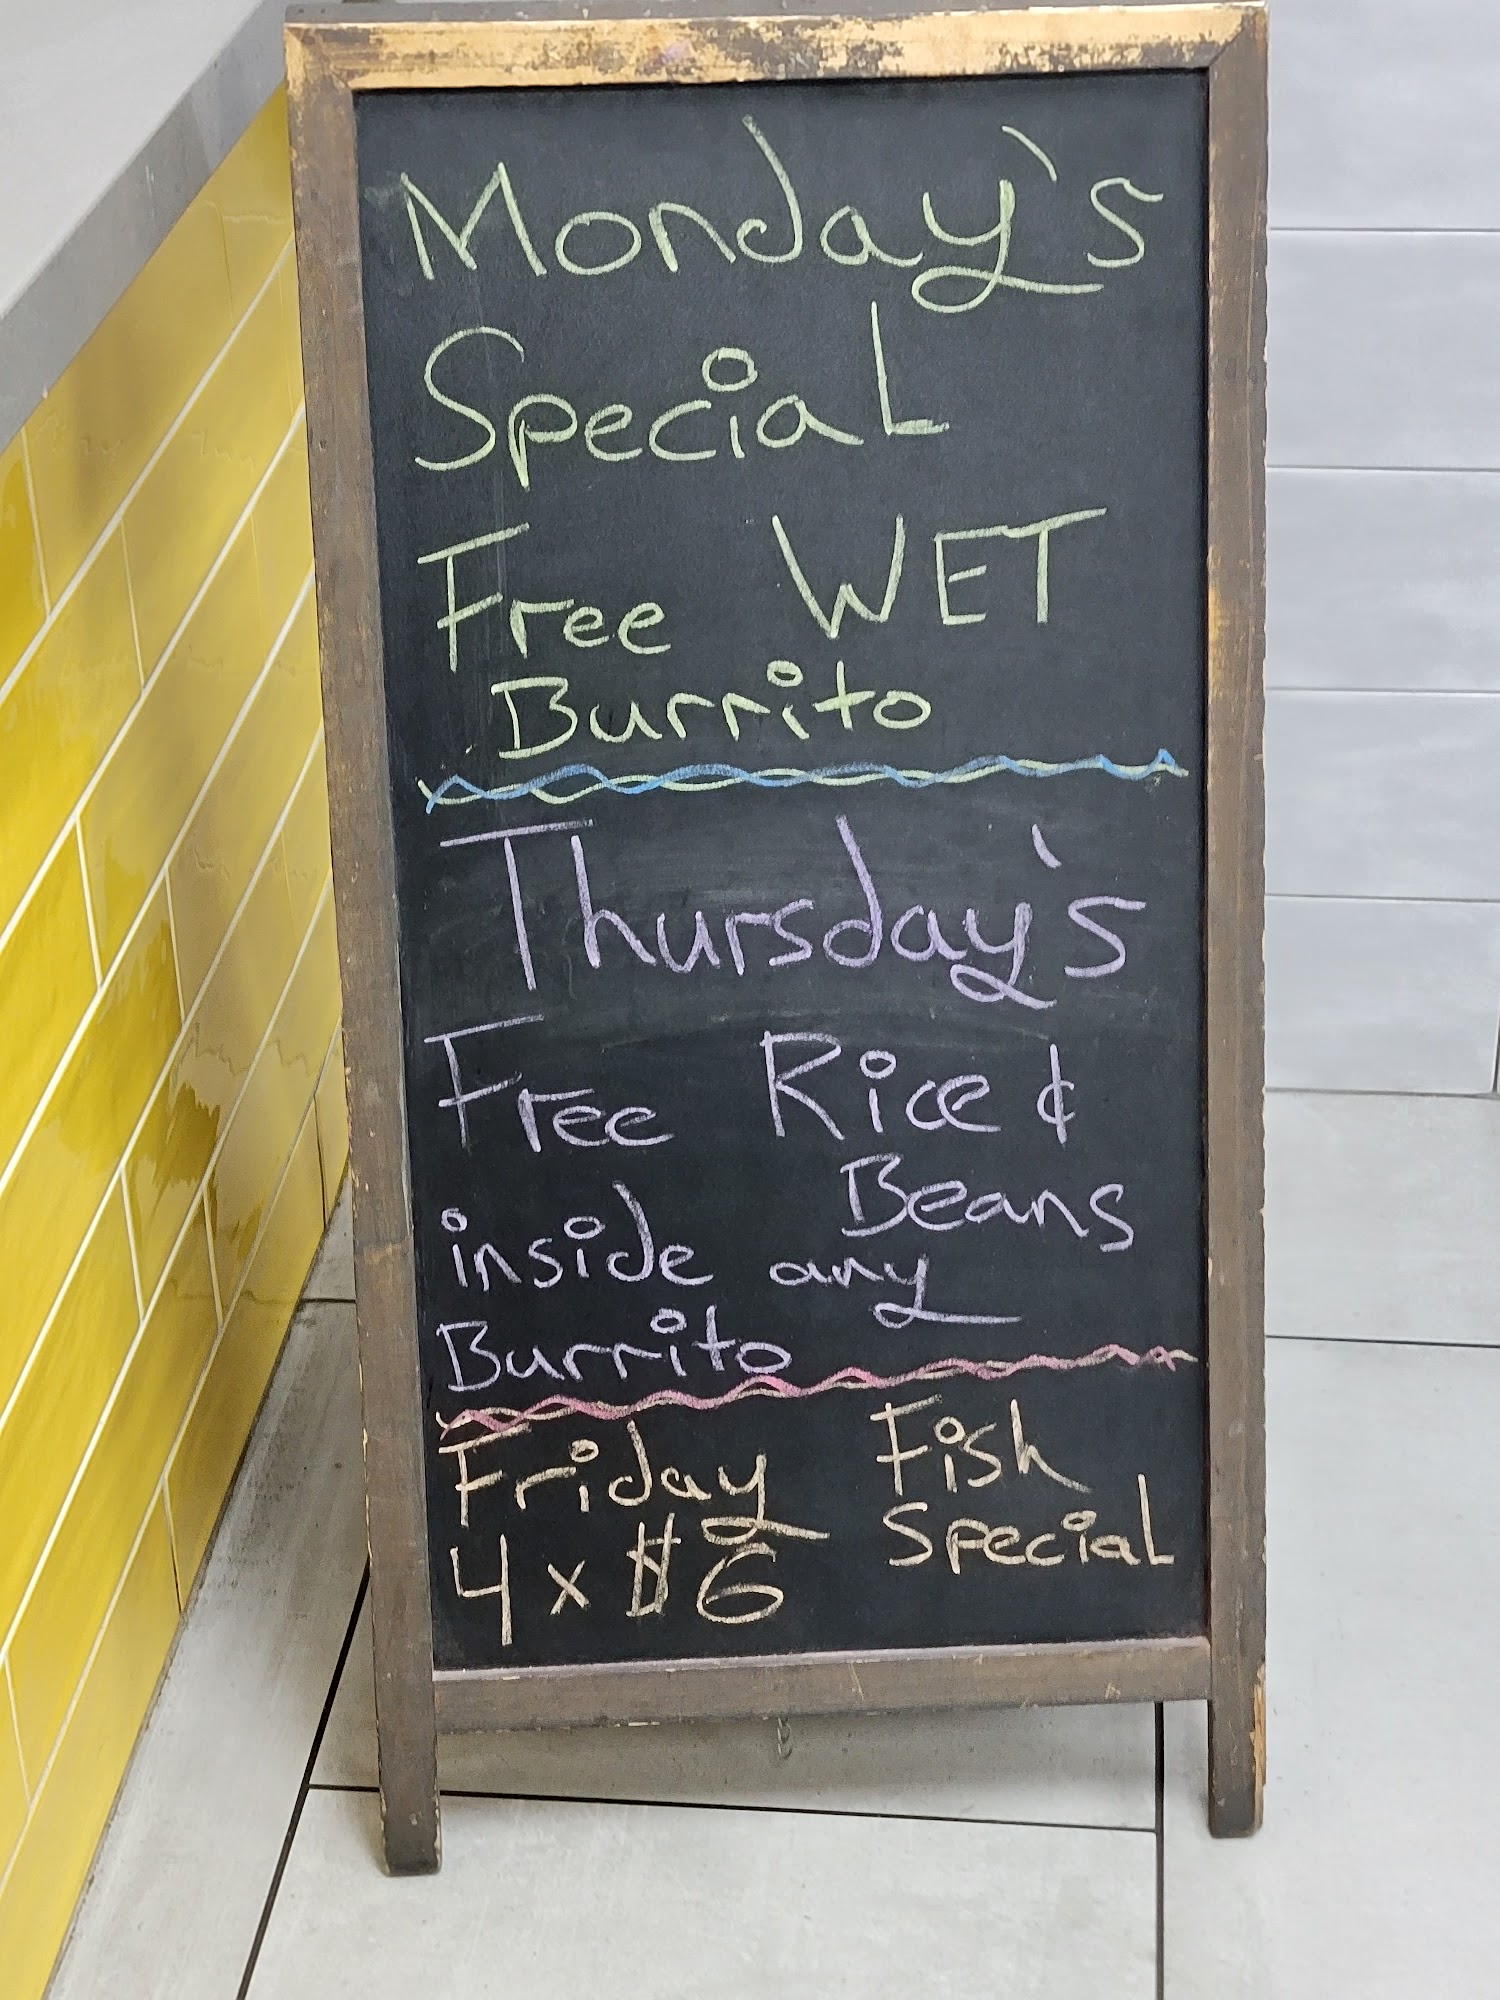 Monday's
Special
Free WET
Burrito
Thursday's
Free Rice &
Beans
inside any
Burrito
Friday Fish
4 x $6 Special